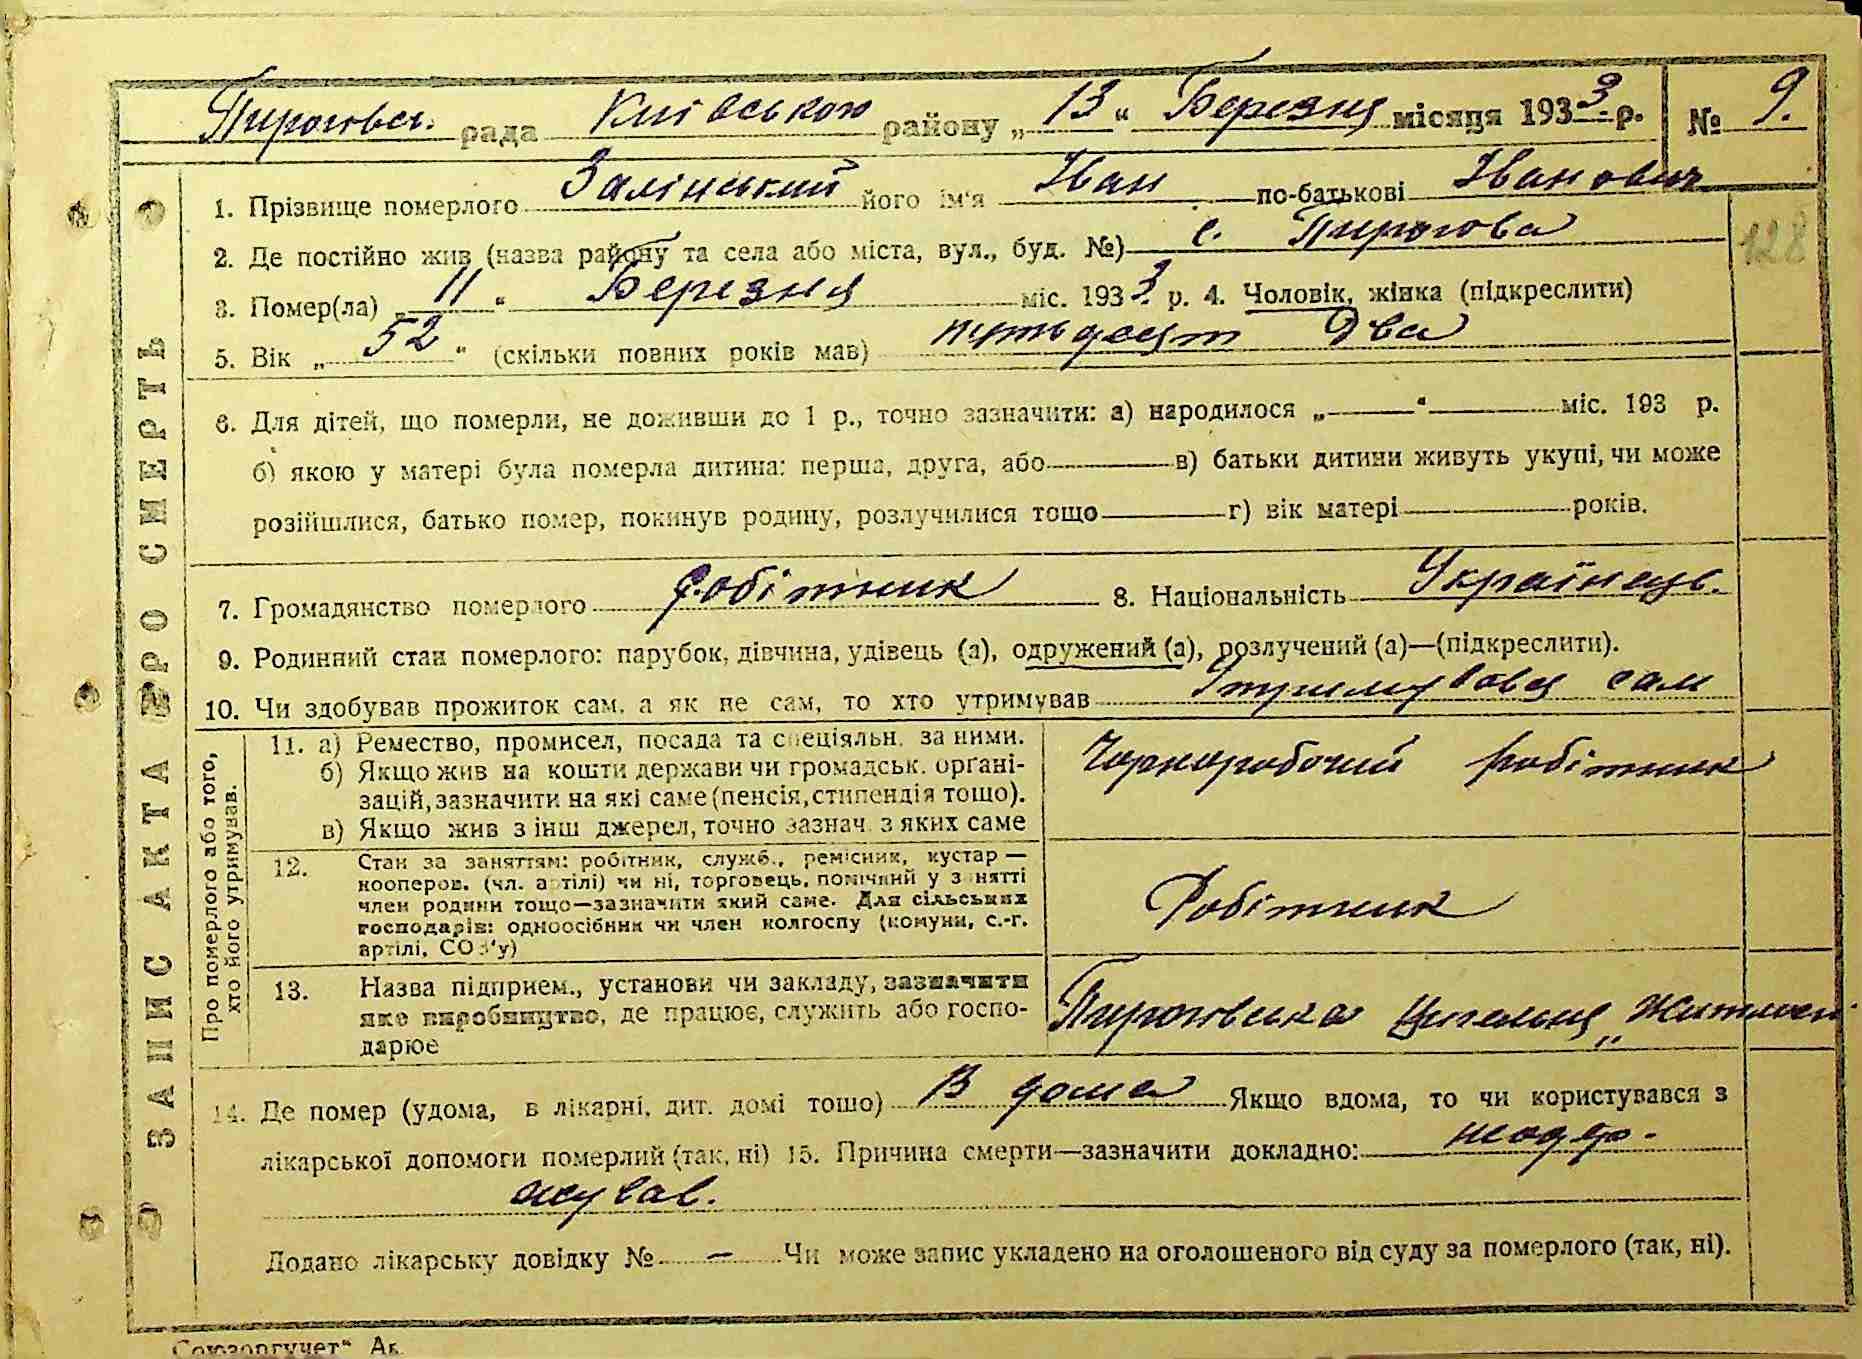 Пироговсь. рада Київською району „ 13 “ Березня місяця 1933 р. № 9.
1. Прізвище померлого Залінський його ім'я Іван по-батькові Іванович
2. Де постійно жив (назва району та села або міста, вул., буд. №) с. Пирогова
128
3. Помер(ла) „ 11 “ Березня міс. 1933 р. 4. Чоловік, жінка (підкреслити)
5. Вік „ 52 “ (скільки повних років мав) пятьдесят два
6. Для дітей, що померли, не доживши до 1 р., точно зазначити: а) народилося „—“— міс. 193 р.
б) якою у матері була померла дитина: перша, друга, або — в) батьки дитини живуть укупі, чи може
розійшлися, батько помер, покинув родину, розлучилися тощо — г) вік матері — років.
7. Громадянство померлого робітник 8. Національність Українець.
9. Родинний стан померлого: парубок, дівчина, удівець (а), одружений (а), розлучений (а)—(підкреслити).
10. Чи здобував прожиток сам, а як не сам, то хто утримував сам
ЗАПИС АКТА ПРО СМЕРТЬ
Про померлого або того,
хто його утримував.
11. а) Ремество, промисел, посада та спеціяльн. за ними.
б) Якщо жив на кошти держави чи громадськ. органі-
зацій, зазначити на які саме (пенсія, стипендія тощо).
в) Якщо жив з інш джерел, точно зазнач. з яких саме
Чорноробочий робітник
12. Стан за заняттям: робітник, служб., ремісник, кустар —
кооперов. (чл. артілі) чи ні, торговець, помічний у занятті
член родини тощо—зазначити який саме. Для сільських
господарів: одноосібник чи член колгоспу (комуни, с.-г.
артілі, СОЗ'у)
Робітник
13. Назва підприєм., установи чи закладу, зазначити
яке виробництво, де працює, служить або госпо-
дарює
Пироговська Цегельня „
14. Де помер (удома, в лікарні, дит. домі тощо) В дома Якщо вдома, то чи користувався з
лікарської допомоги померлий (так, ні) 15. Причина смерти—зазначити докладно:
Додано лікарську довідку № — Чи може запис укладено на оголошеного від суду за померлого (так, ні).
Союзоргучет“ Ак.